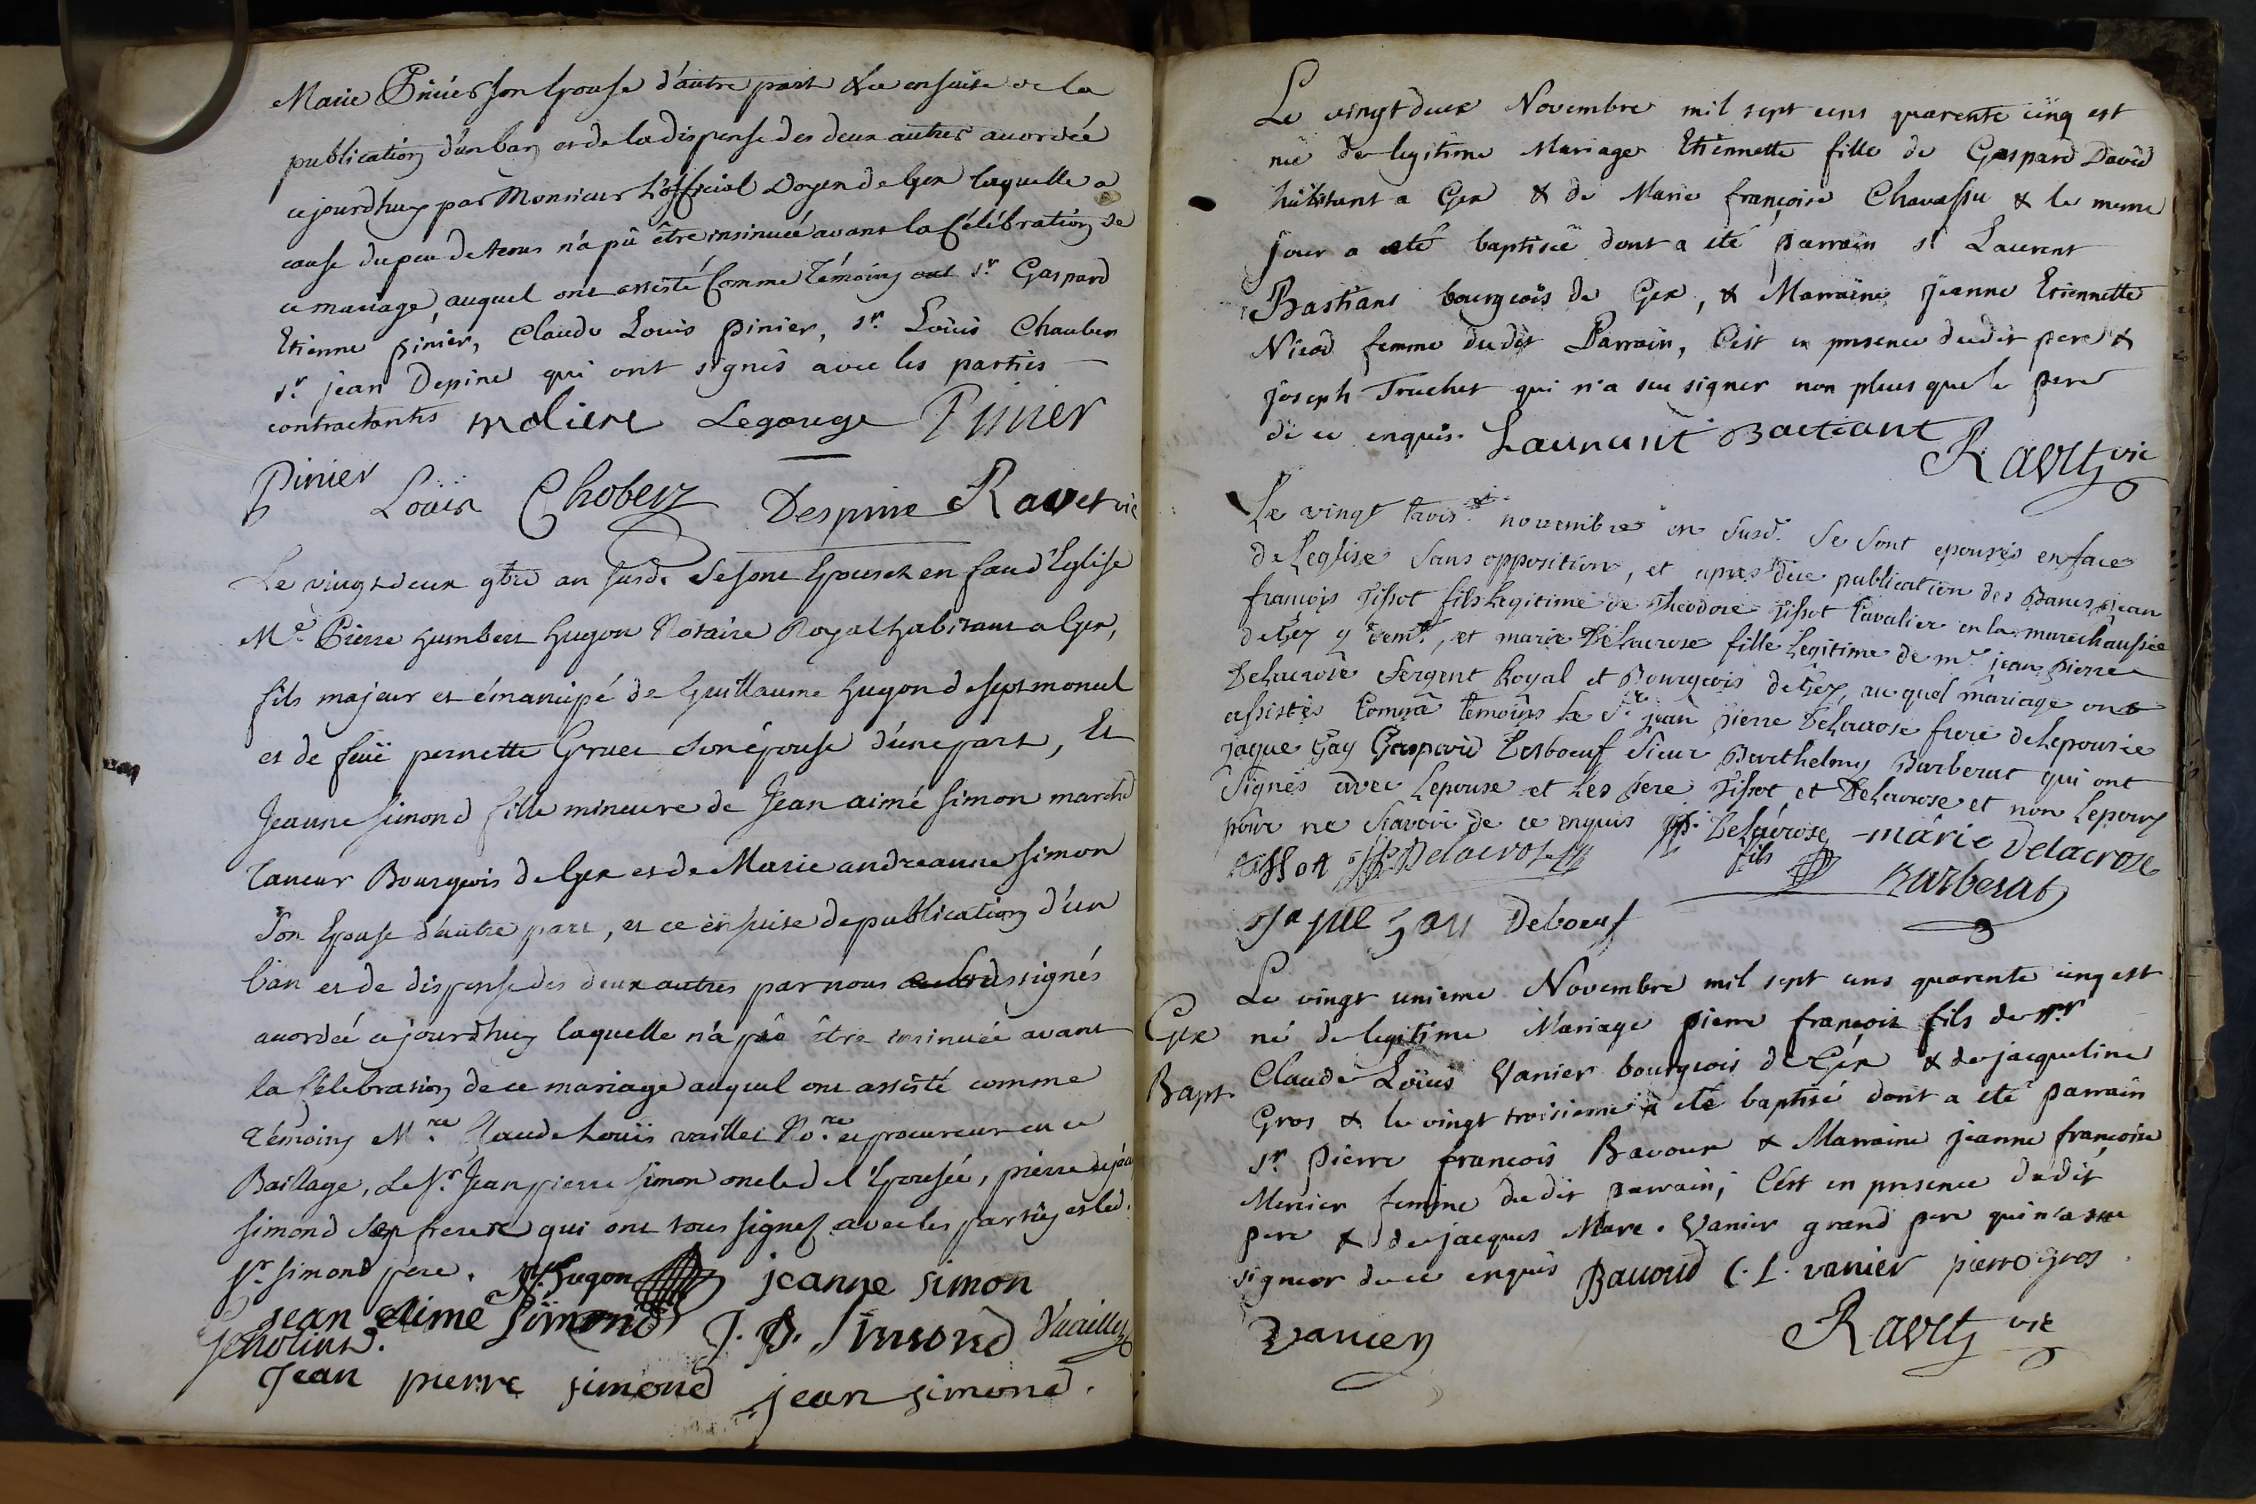 Marie Pinier son Epouse d'autre part & ce ensuite de la
publication d'un ban et de la dispense des deux autres accordée
cejourdhuy par Monsieur L'official Doyen de Gex laquelle a
cause du peu de tems n'a pû être insinuée avant la Célébration de
ce mariage, auquel ont assisté Comme Témoins sr. Gaspard
Etienne pinier, Claude Louis pinier, sr. Loüis Chauber
sr. jean Depine qui ont signés avec les parties
contractantes moliere Legouge Pinier
Pinier Loüis Choberz Despine Ravet vic
Le vingt deux 9bre an susd. Se sont Epousez en face d'Eglise
Me. Pierre humbert hugon Notaire Royal habitant a Gex,
fils majeur et émancipé de Guillaume hugon de septmoncel
et de feüe pernette Gruet son épouse d'une part, Et
Jeanne simond fille mineure de Jean aimé simon marchd
Taneur Bourgeois de Gex et de Marie andreanne simon
son Epouse d'autre part, et ce ensuite de publication d'un
ban et de dispense des deux autres par nous soussignés
accordée cejourdhuy laquelle n'a pû être insinuée avant
la Célébration de ce mariage auquel ont assisté comme
Témoins Mre Claude Loüis vaillet No.re et procureur en ce
Baillage, Le Sr. Jean pierre simon oncle de l'Epousée, pierre et jean
simond ses freres qui ont tous signez avec les parties et led.
sr. simond pere. hugon jeanne simon
jean aimé simond J. P. Simond Vuaillet
Jean pierre simond jean simond.
Le vingt deux Novembre mil sept cens quarente cinq est
née de legitime Mariage Etiennette fille de Gaspard David
habitant a Gex & de Marie françoise Chavassu & le meme
jour a eté baptisée dont a été parrain sr Laurent
Bastians bourgeois de Gex, & Marraine jeanne Etiennette
Nicod femme dudit Parrain, C'est en presence dudit pere &
joseph Truchet qui n'a sçu signer non plus que le pere
de ce enquis. Laurant Bactiant
Ravet vic
Le vingt trois.e novembre an susd. se sont epousés en face
de Leglise sans opposition, et apres due publication des Bancs, jean
françois Tissot fils Legitime de Theodore Tissot Cavalier en la marechaussée
de Gex y demt, et marie Delacrose fille Legitime de me jean pierre
Delacrose sergent Royal et Bourgeois de Gex, auquel mariage ont
assistés Comme temoins Le Sr. jean pierre Delacrose frere de Lepousée
jaque Gay Gaspard Desboeuf sieur Barthelmy Barberat qui ont
signés avec Lepouse et Les pere Tissot et Delacrose et non Lepoux
pour ne sçavoir de ce enquis Delacrose fils marie Delacroze
tissot Delacrose Barberat
Jaque Gay Deboeuf
Gex
Bapt.
Le vingt unieme Novembre mil sept cens quarente cinq est
né de legitime Mariage pierre françois fils de sr
Claude Loüis Vanier bourgeois de Gex & de jacqueline
Gros & le vingt troisieme a eté baptisé dont a été parrain
sr. pierre françois Bavoux & Marraine jeanne françoise
Mercier femme dudit parrain; C'est en presence dudit
pere & de jacques Marc. Vanier grand pere qui n'a sçu
signer de ce enquis Bavoud C. L. vanier pierre gros
Vanier Ravet vic